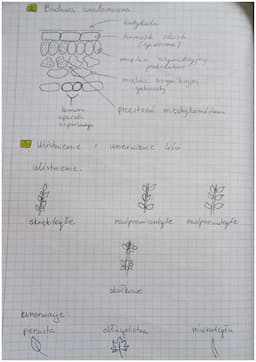 2. Budowa anatomiczna
kutykula
komórki skórki
(epiderma)
miękisz asymilacyjny
palisadowy
miękisz asymilacyjny
gąbczasty
przestwór międzykomórkowy
komora
aparatu
szparkowego
3. Ulistnienie i unerwienie liścia
Ulistnienie:
skrętoległe
naprzemianległe
naprzeciwległe
okółkowe
unerwienie:
pierzasta
dłoniasta
równoległa